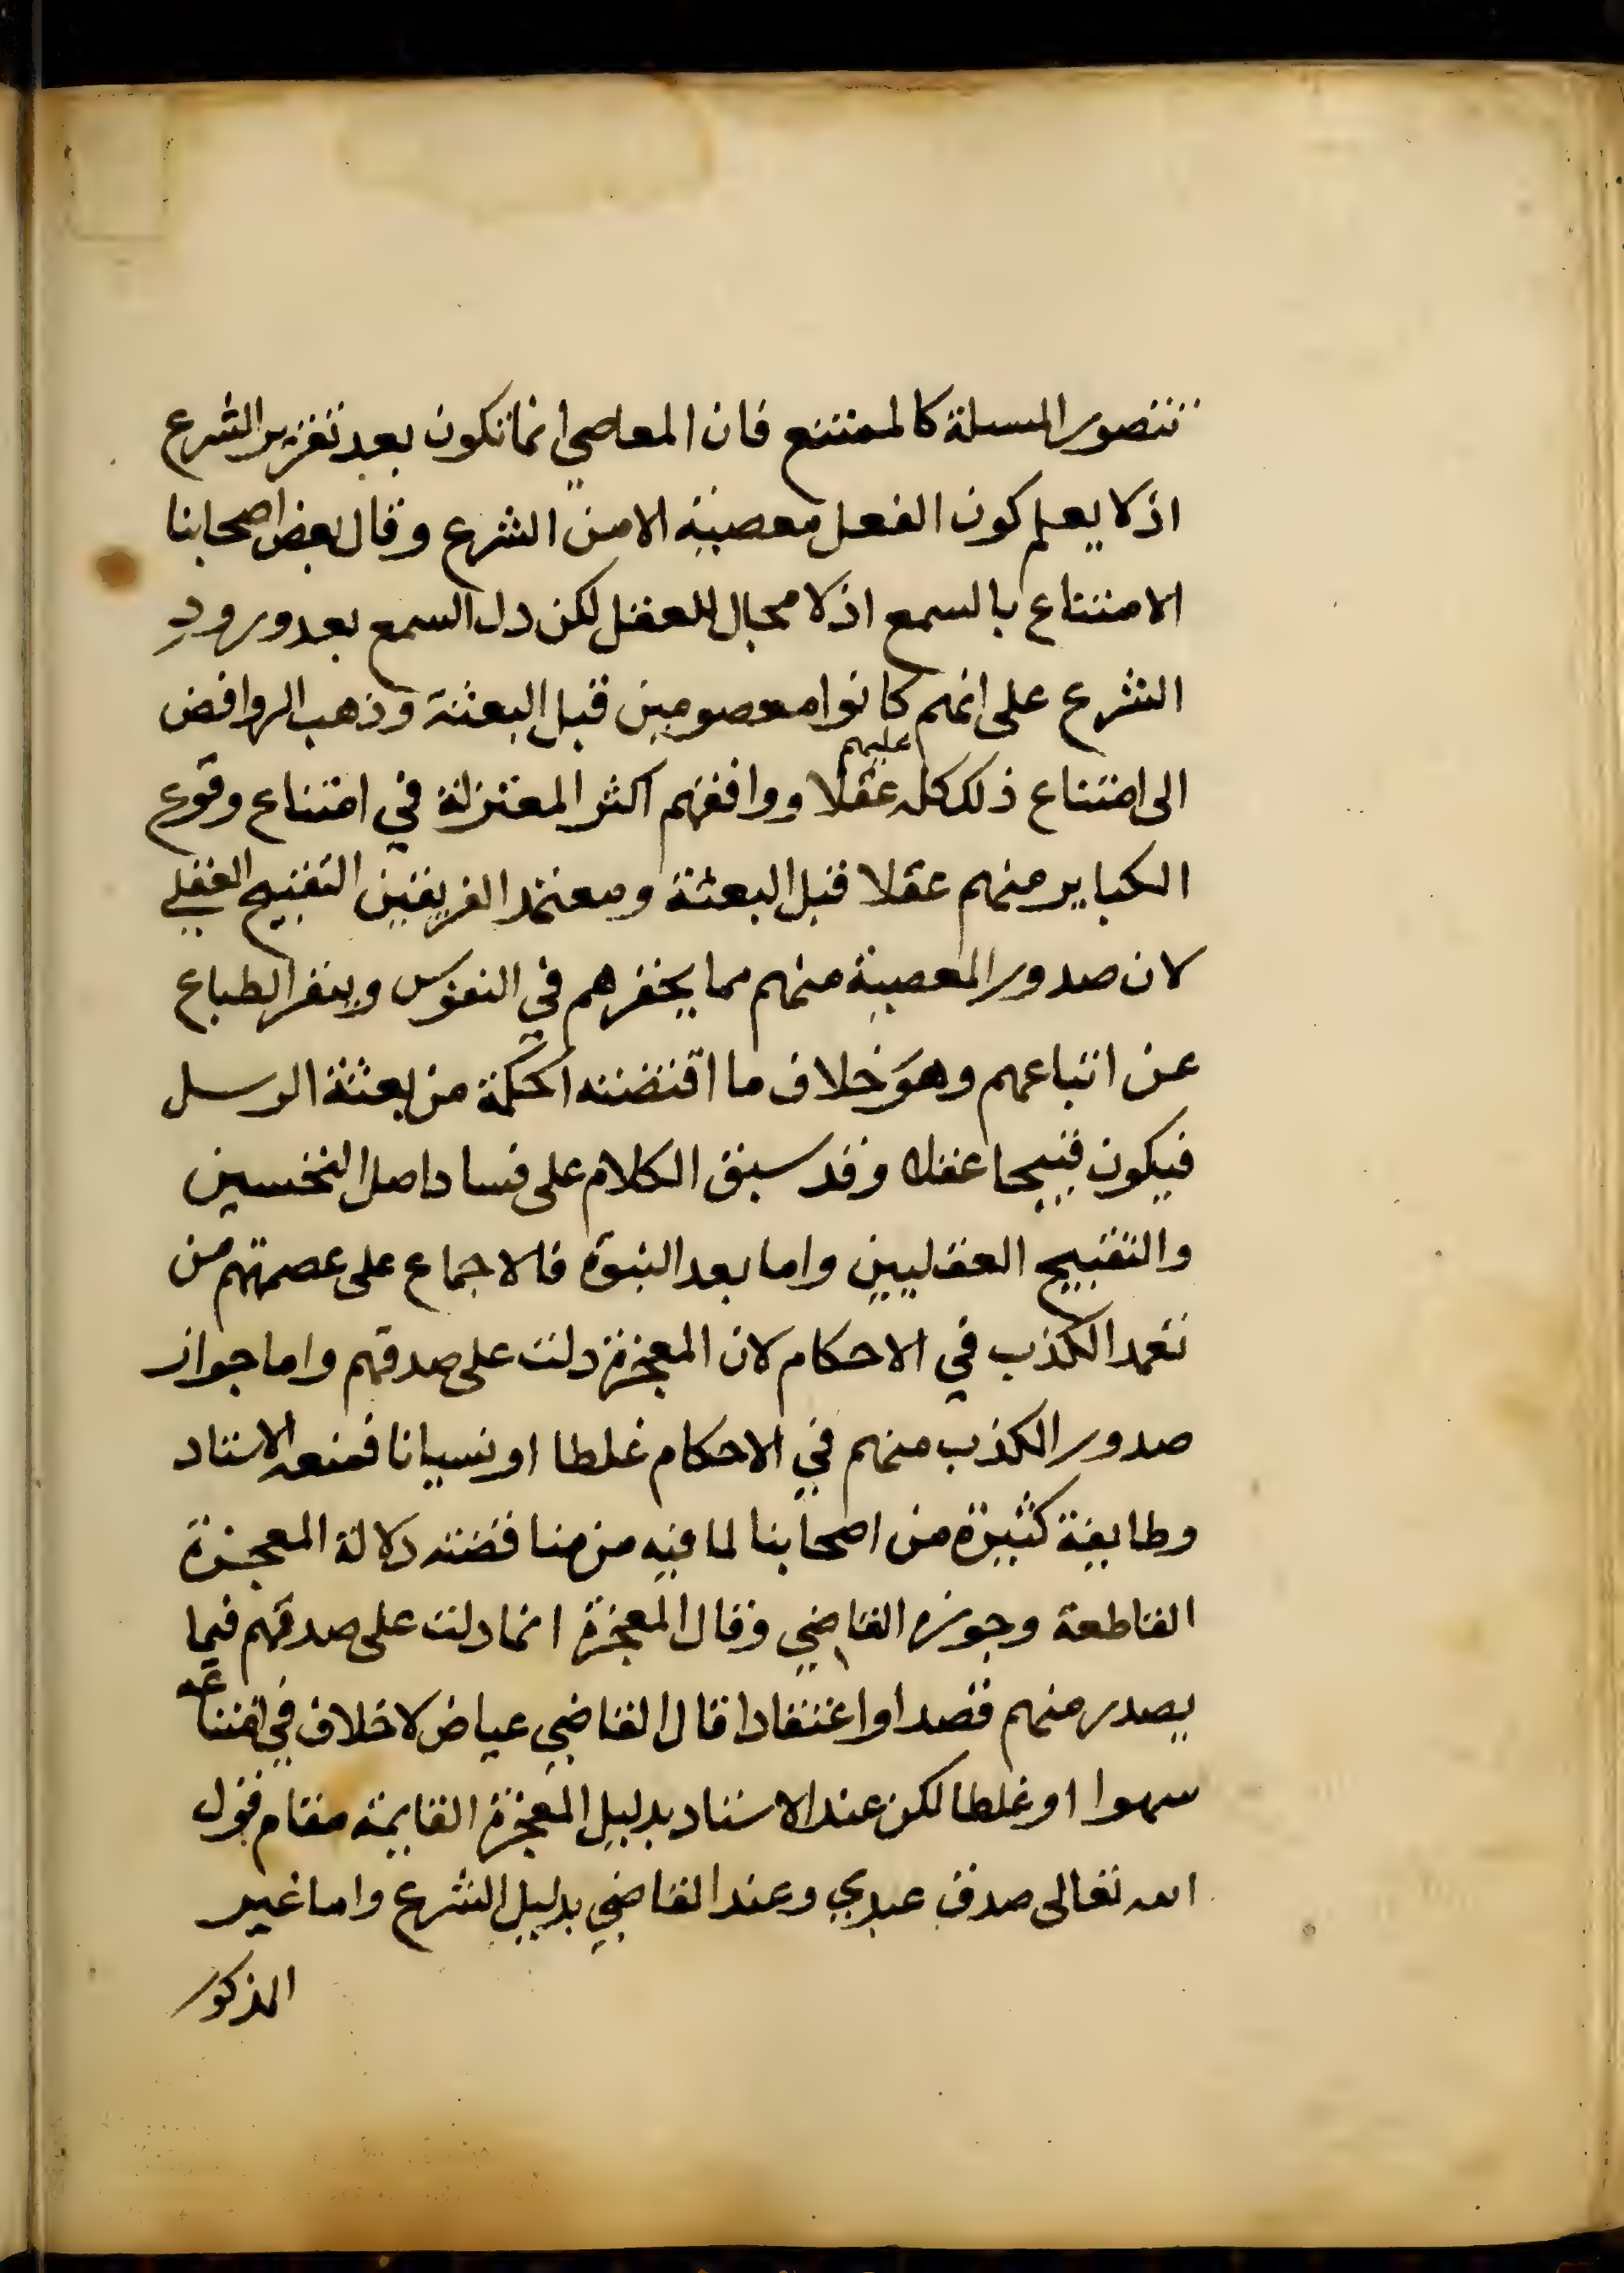 تتصور المسلة كالممتنع فان المعاصي انما تكون بعد تقرير الشرع
اذ لا يعلم كون الفعل معصية الا من الشرع وقال بعض اصحابنا
الامتناع بالسمع اذ لا مجال للعقل لكن دل السمع بعد ورود
الشرع على انهم كانوا معصومين قبل البعثة وذهب الروافض
الى امتناع ذلك كله عليهم عقلا ووافقهم اكثر المعتزلة في امتناع وقوع
الكباير منهم عقلا قبل البعثة ومعتمد الفريقين التقبيح العقلي
لان صدور المعصية منهم مما يحقرهم في النفوس وينفر الطباع
عن اتباعهم وهو خلاف ما اقتضته الحكمة من بعثة الرسل
فيكون قبيحا عقلا وقد سبق الكلام على فساد اصل التحسين
والتقبيح العقليين واما بعد النبوة فالاجماع على عصمتهم من
تعمد الكذب في الاحكام لان المعجزة دلت على صدقهم واما جواز
صدور الكذب منهم في الاحكام غلطا او نسيانا فمنعه الاستاد
وطايفة كثيرة من اصحابنا لما فيه من مناقضته دلالة المعجزة
القاطعة وجوزه القاضي وقال المعجزة انما دلت على صدقهم فيما
يصدر منهم قصدا او اعتقادا قال القاضي عياض لا خلاف في امتناعه
سهوا او غلطا لكن عند الاستاد بدليل المعجزة القايمة مقام قول
الله تعالى صدق عبدي وعند القاضي بدليل الشرع واما غير
المذكور